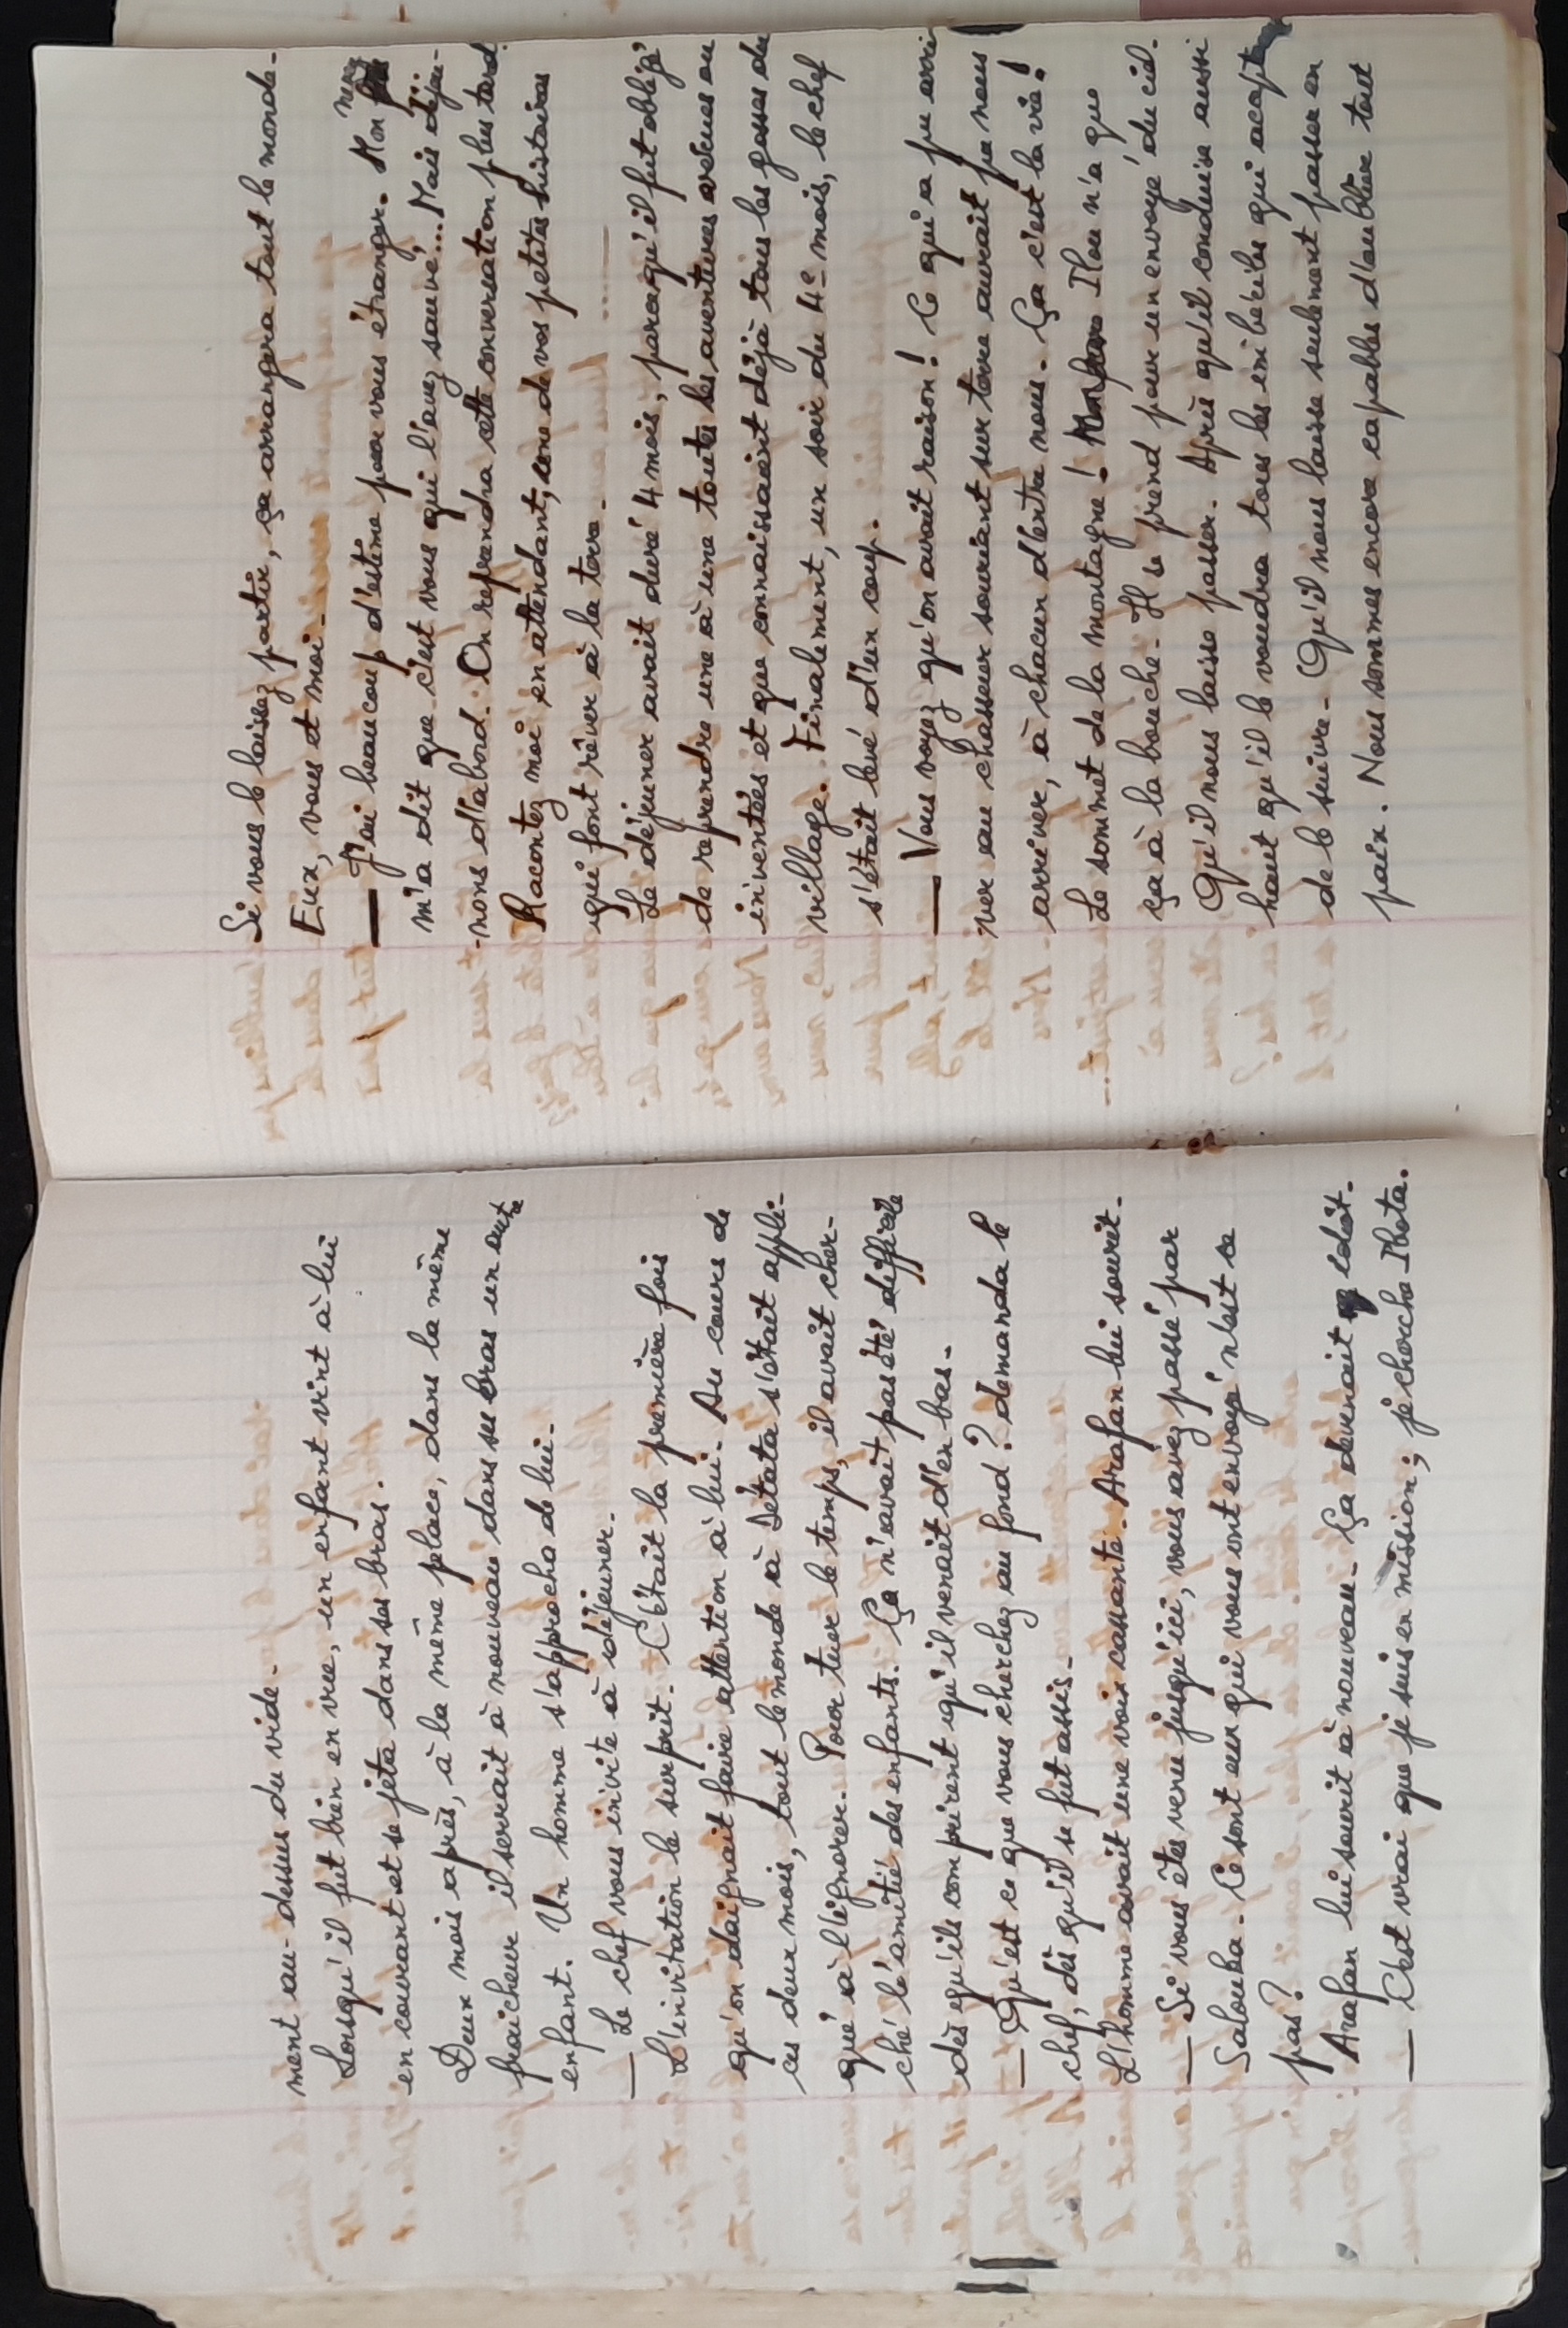 ment au-dessus du vide-
Lorsqu'il fut bien en vue, un enfant vint à lui
en courant et se jeta dans ses bras.
Deux mois après, à la même place, dans la même
fraicheur il serrait à nouveau dans ses bras un autre
enfant. Un homme s'approcha de lui-
— Le chef vous invite à déjeuner-
L'invitation le surprit- C'était la première fois
qu'on daignait faire attention à lui- Au cours de
ces deux mois, tout le monde à Sétata s'était appli-
qué à l'ignorer- Pour tuer le temps, il avait cher-
ché l'amitié des enfants. Ça n'avait pas été difficile
dès qu'ils comprirent qu'il venait d'en bas-
— Qu'est ce que vous cherchez au fond? demanda le
chef, dès qu'il se fut assis-
L'homme avait une voix cassante- Arafan lui sourit-
— Si vous êtes venu jusqu'ici, vous avez passé par
Salouba- Ce sont eux qui vous ont envoyé n'est ce
pas?
Arafan lui sourit à nouveau- Ça devenait idiot-
— C'est vrai que je suis en mission; je cherche Ilota.
Si vous le laissez partir, ça arrangera tout le monde-
Eux, vous et moi-
— J'ai beaucoup d'estime pour vous étranger. Mon neveu
m'a dit que c'est vous qui l'avez sauvé... Mais déjeu-
-nons d'abord. On reprendra cette conversation plus tard.
Racontez moi en attendant, une de vos petites histoires
qui font rêver à la terre-
Le déjeuner avait duré 4 mois, parce qu'il fut obligé
de reprendre une à une toutes les aventures vécues ou
inventées et que connaissaient déjà tous les gosses du
village. Finalement, un soir du 4e mois, le chef
s'était levé d'un coup.
— Vous voyez qu'on avait raison! Ce qui a pu arri
ver au chasseur souriant sur terre aurait pu nous
arriver, à chacun d'entre nous- Ça c'est la vie!
Le sommet de la montagne! Ilou n'a que
ça à la bouche- Il se prend pour un envoyé du ciel-
Qu'il nous laisse passer- Après qu'il conduise aussi
haut qu'il le voudra tous les imbéciles qui acceptent
de le suivre- Qu'il nous laisse seulement passer en
paix. Nous sommes encore capables d'oublier tout